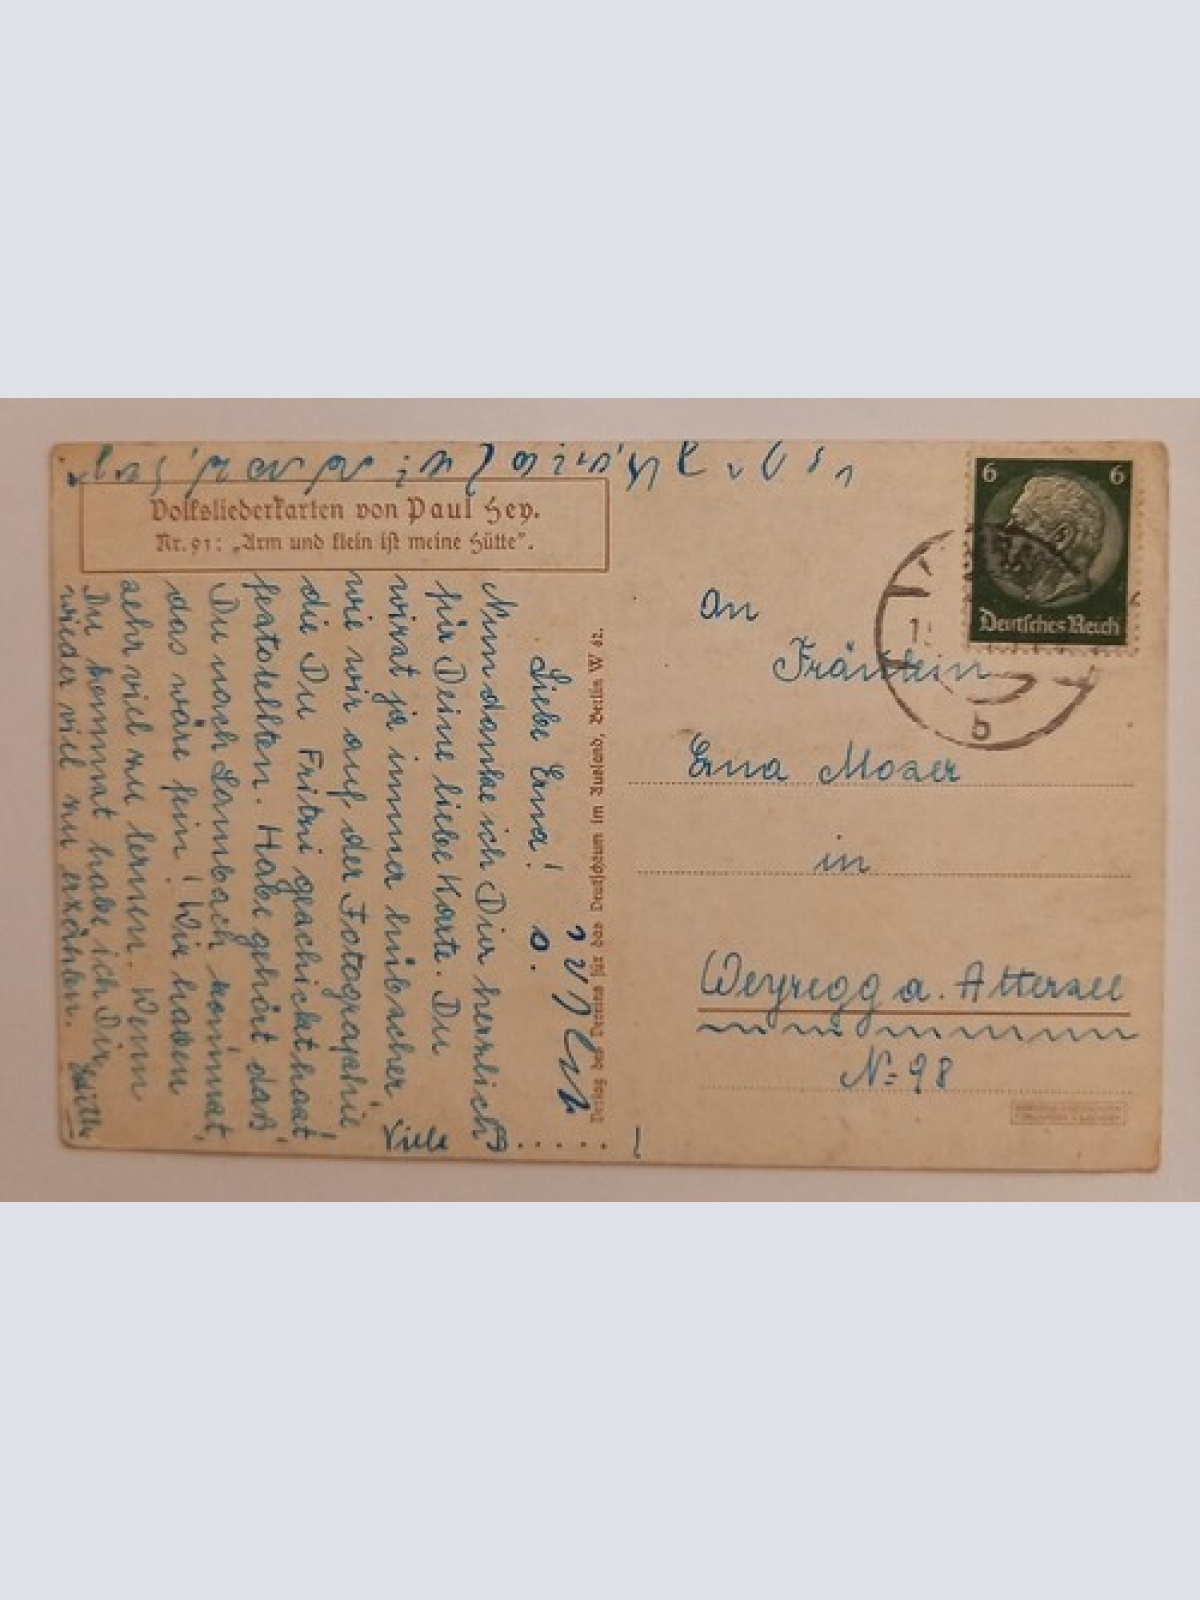 Volksliederkarten von Paul Hey.
Nr. 91: „Arm und klein ist meine Hütte“.
Liebe Erna!
Nun danke ich Dir herzlich
für Deine liebe Karte. Du
wirst ja immer hübscher
wie wir auf der Fotographie
die Du Fritzi geschickt hast
feststellten. Habe gehört, daß
Du nach Lambach kommst,
das wäre fein! Wir haben
sehr viel zu lernen. Wenn
Du kommst habe ich Dir
wieder viel zu erzählen.
Viele
Edith
Verlag des Vereins für das Deutschtum im Ausland, Berlin W 62.
6 6
Deutsches Reich
b
An
Fräulein
Erna Moser
in
Weyregg a. Attersee
N= 98